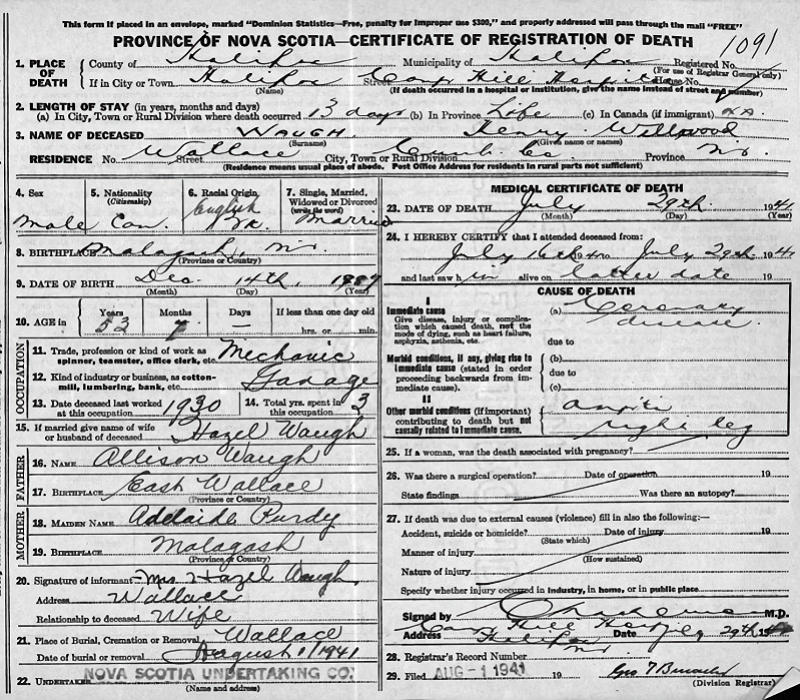 This form if placed in an envelope, marked "Dominion Statistics—Free, penalty for improper use $300," and properly addressed will pass through the mail "FREE"
PROVINCE OF NOVA SCOTIA—CERTIFICATE OF REGISTRATION OF DEATH 1091
1. PLACE OF DEATH County of Halifax Municipality of Halifax Registered No.
(For use of Registrar General only)
If in City or Town Halifax Street Camp Hill Hospital House No.
(Name) (If death occurred in a hospital or institution, give the name instead of street and number)
2. LENGTH OF STAY (in years, months and days)
(a) In City, Town or Rural Division where death occurred 13 days (b) In Province Life (c) In Canada (if immigrant)
3. NAME OF DECEASED WAUGH. Henry
(Surname) (Given name or names)
RESIDENCE No. Wallace Street City, Town or Rural Division Cumb. Co. Province N.S.
(Residence means usual place of abode. Post Office Address for residents in rural parts not sufficient)
4. Sex Male
5. Nationality (Citizenship) Can.
6. Racial Origin English
7. Single, Married, Widowed or Divorced (write the word) Married
8. BIRTHPLACE Malagash, N.S.
(Province or Country)
9. DATE OF BIRTH Dec. 14th, 1887
(Month) (Day) (Year)
10. AGE in Years 53 Months 7 Days — If less than one day old
hrs. or min.
OCCUPATION
11. Trade, profession or kind of work as spinner, teamster, office clerk, etc. Mechanic
12. Kind of industry or business, as cotton-mill, lumbering, bank, etc. Garage
13. Date deceased last worked at this occupation 1930
14. Total yrs. spent in this occupation 3
15. If married give name of wife or husband of deceased Hazel Waugh
FATHER
16. NAME Allison Waugh
17. BIRTHPLACE East Wallace
(Province or Country)
MOTHER
18. MAIDEN NAME Adelaide Purdy
19. BIRTHPLACE Malagash
(Province or Country)
20. Signature of informant Mrs. Hazel Waugh
Address Wallace
Relationship to deceased Wife
21. Place of Burial, Cremation or Removal Wallace
Date of burial or removal August 1/1941
22. UNDERTAKER NOVA SCOTIA UNDERTAKING CO.
(Name and address)
MEDICAL CERTIFICATE OF DEATH
23. DATE OF DEATH July 29th. 1941
(Month) (Day) (Year)
24. I HEREBY CERTIFY that I attended deceased from:
July 16th 1941 to July 29th. 1941
and last saw him alive on latter date 19
CAUSE OF DEATH
I
Immediate cause
Give disease, injury or complication which caused death, not the mode of dying, such as heart failure, asphyxia, asthenia, etc.
(a) Coronary disease.
due to
Morbid conditions, if any, giving rise to immediate cause (stated in order proceeding backwards from immediate cause).
(b)
due to
(c)
II
Other morbid conditions (if important) contributing to death but not causally related to immediate cause.
right leg
25. If a woman, was the death associated with pregnancy?
26. Was there a surgical operation? Date of operation 19
State findings Was there an autopsy?
27. If death was due to external causes (violence) fill in also the following:—
Accident, suicide or homicide? Date of injury 19
(State which)
Manner of injury
(How sustained)
Nature of injury
Specify whether injury occurred in industry, in home, or in public place
Signed by M.D.
Address Camp Hill Hosp. Halifax NS Date July 29th 19
28. Registrar's Record Number
29. Filed AUG - 1 1941 19
(Division Registrar)